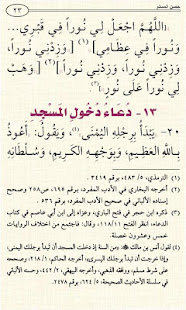 حصن المسلم
٢٣
((اللَّهُمَّ اجْعَلْ لِي نُوراً فِي قَبْرِي...
وَنُوراً فِي عِظَامِي)) (١) [((وَزِدْنِي نُوراً،
وَزِدْنِي نُوراً، وَزِدْنِي نُوراً))] (٢) [((وَهَبْ
لِي نُوراً عَلَى نُورٍ))] (٣)
١٣- دُعَاءُ دُخُولِ المَسْجِدِ
٢٠- يَبْدَأُ بِرِجْلِهِ الْيُمْنَى (٤)، وَيَقُولُ: ((أَعُوذُ
بِاللَّهِ العَظِيمِ، وَبِوَجْهِهِ الْكَرِيمِ، وَسُلْطَانِهِ
(١) الترمذي، ٥/ ٤٨٣، برقم ٣٤١٩.
(٢) أخرجه البخاري في الأدب المفرد، برقم ٦٩٥، ص٢٥٨ وصحح
إسناده الألباني في صحيح الأدب المفرد، برقم ٥٣٦.
(٣) ذكره ابن حجر في فتح الباري، وعزاه إلى ابن أبي عاصم في كتاب
الدعاء، انظر الفتح ١١/ ١١٨، وقال: فاجتمع من اختلاف الروايات
خمس وعشرون خصلة.
(٤) لقول أنس بن مالك: ((من السنة إذا دخلت المسجد أن تبدأ برجلك اليمنى،
وإذا خرجت أن تبدأ برجلك اليسرى))، أخرجه الحاكم، ١/ ٢١٨، وصححه
على شرط مسلم، ووافقه الذهبي، وأخرجه البيهقي، ٢/ ٤٤٢، وحسنه الألباني
في سلسلة الأحاديث الصحيحة، ٥/ ٦٢٤، برقم ٢٤٧٨.